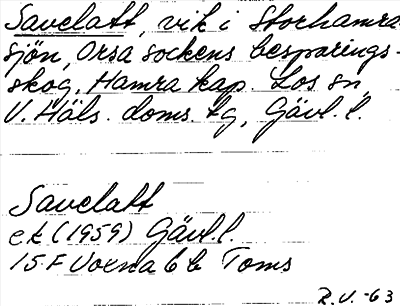 Savelatt, vik i Storhamra
sjön, Orsa sockens besparings-
skog, Hamra kap. Los sn,
V. Häls. doms. tg, Gävl. l.
Savelatt
ek (1959) Gävl. l.
15 F Voxna 6 b Toms
R.V. -63